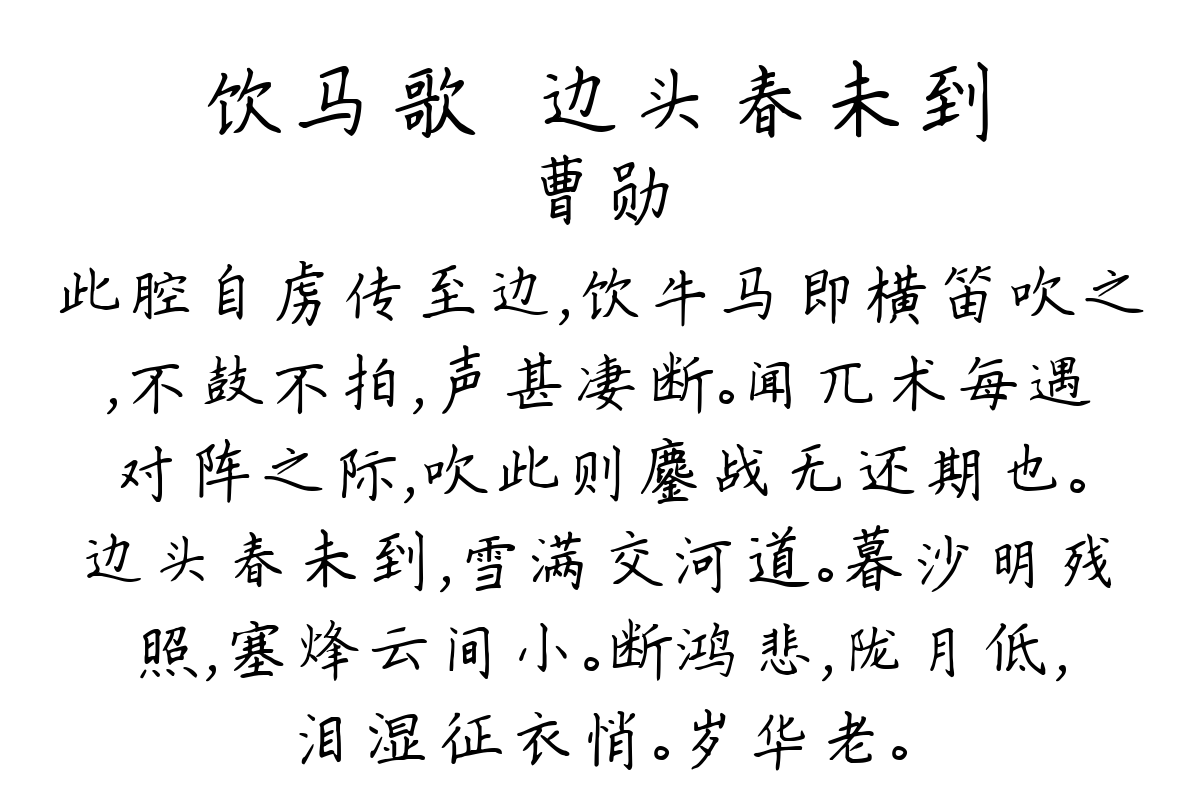 饮马歌 边头春未到
曹勋
此腔自虏传至边,饮牛马即横笛吹之
,不鼓不拍,声甚凄断。闻兀术每遇
对阵之际,吹此则鏖战无还期也。
边头春未到,雪满交河道。暮沙明残
照,塞烽云间小。断鸿悲,陇月低,
泪湿征衣悄。岁华老。